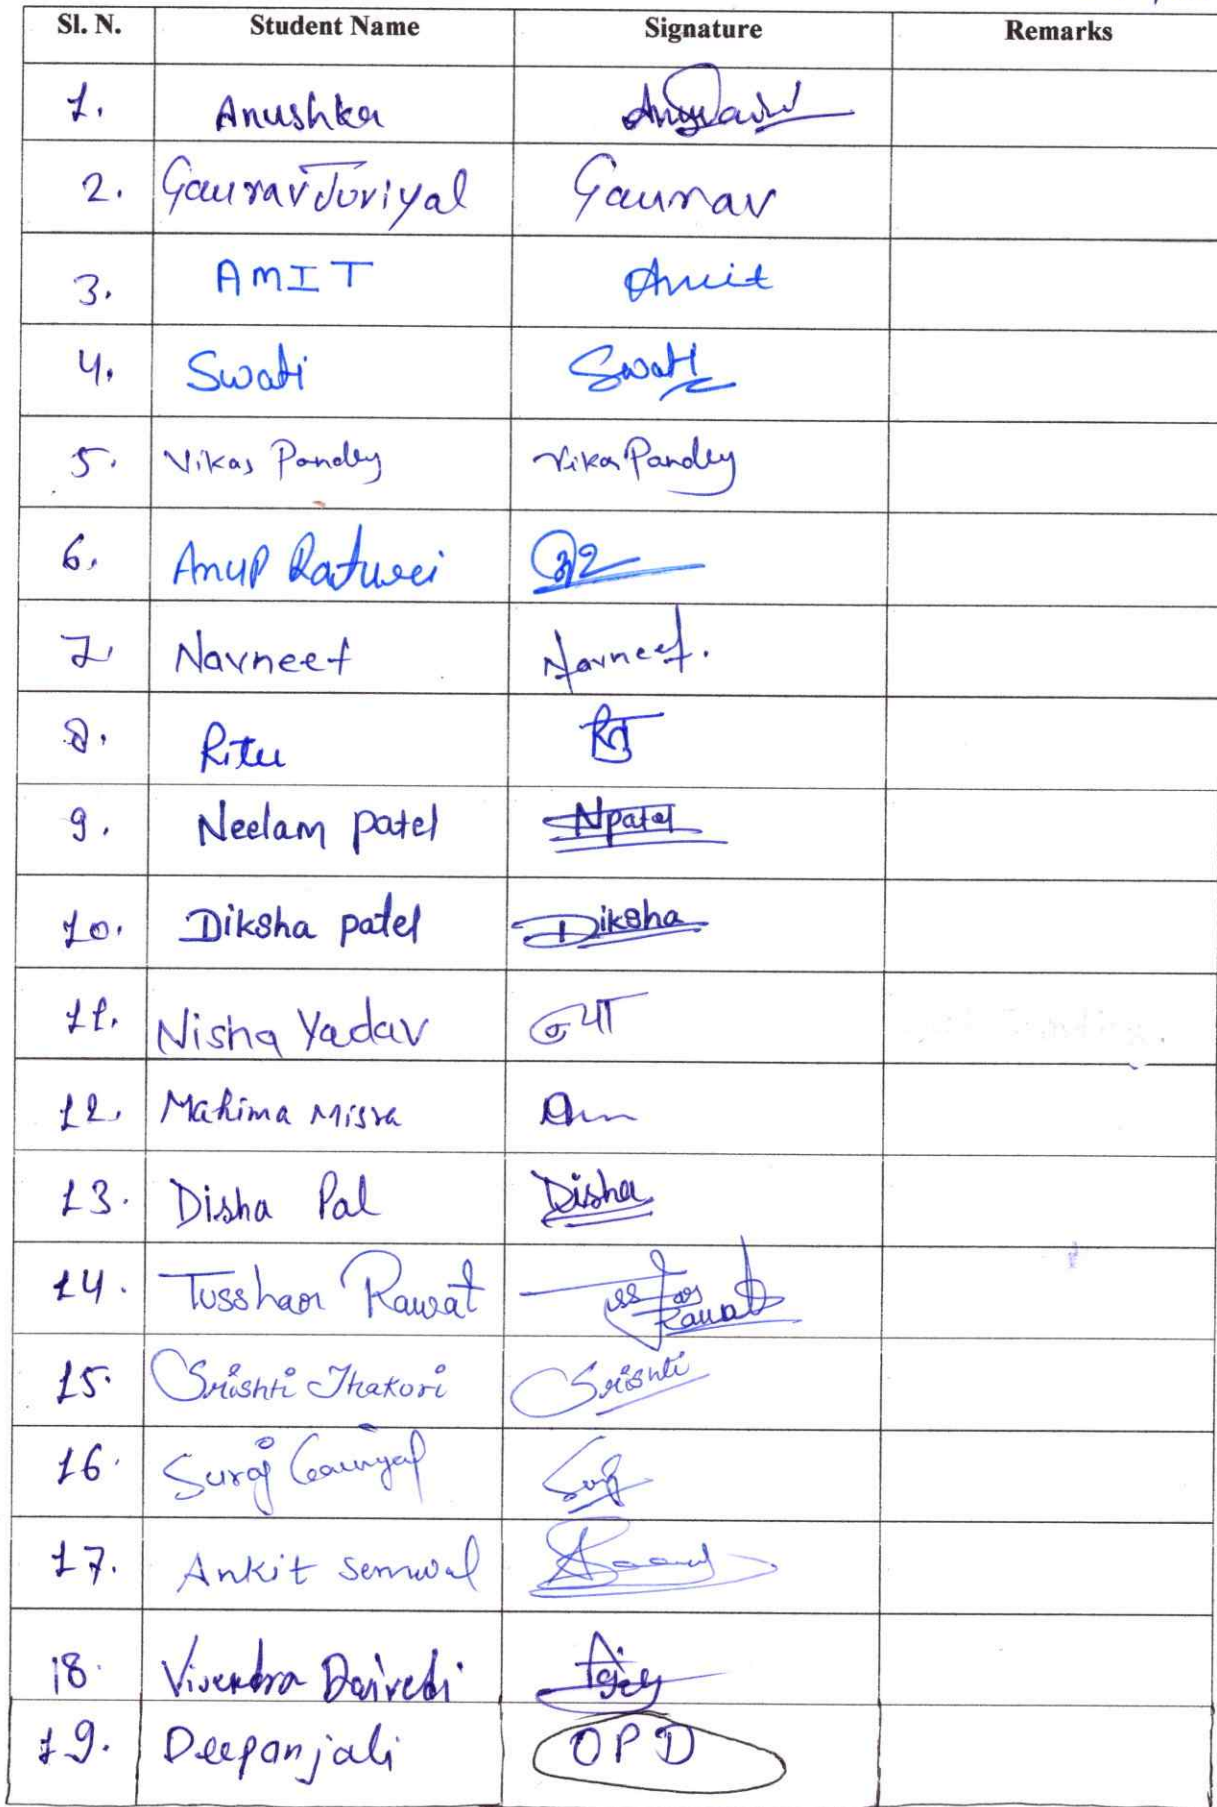 Sl. N. Student Name Signature Remarks
1. Anushka
2. Gaurav Juriyal Gaurav
3. AMIT Amit
4. Swati Swati
5. Vikas Pandey Vikas Pandey
6. Anup Raturi
7. Navneet Navneet.
8. Ritu
9. Neelam patel Npatel
10. Diksha patel Diksha
11. Nisha Yadav
12. Mahima Misra
13. Disha Pal Disha
14. Tusshar Rawat Tusshar Rawat
15. Srishti Thakori Srishti
16. Suraj Suraj
17. Ankit Semwal
18. Virendra
19. Deepanjali OPD